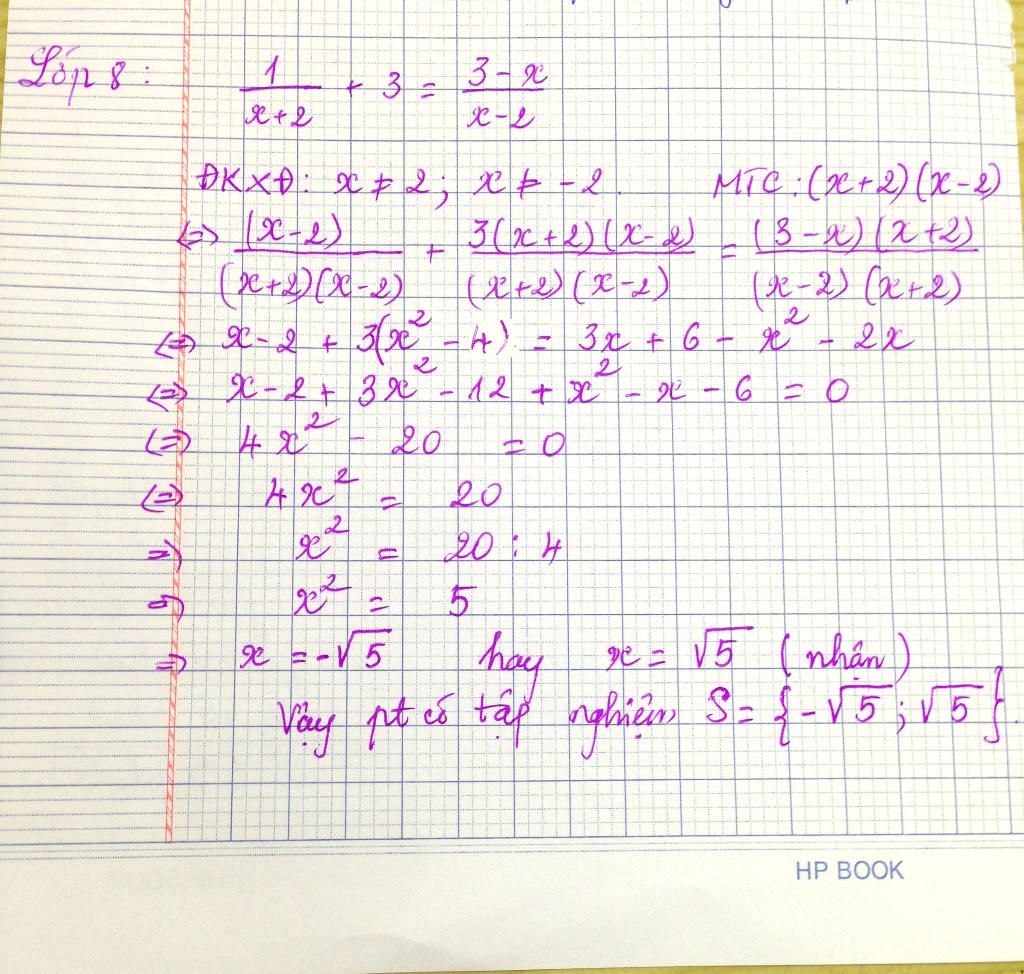 Lớp 8 : 1/(x+2) + 3 = (3-x)/(x-2)
ĐKXĐ: x ≠ 2; x ≠ -2. MTC: (x+2)(x-2)
<=> (x-2)/((x+2)(x-2)) + 3(x+2)(x-2)/((x+2)(x-2)) = (3-x)(x+2)/((x-2)(x+2))
<=> x - 2 + 3(x² - 4) = 3x + 6 - x² - 2x
<=> x - 2 + 3x² - 12 + x² - x - 6 = 0
<=> 4x² - 20 = 0
<=> 4x² = 20
=> x² = 20 : 4
=> x² = 5
=> x = -√5 hay x = √5 (nhận)
Vậy pt có tập nghiệm S = {-√5; √5}.
HP BOOK